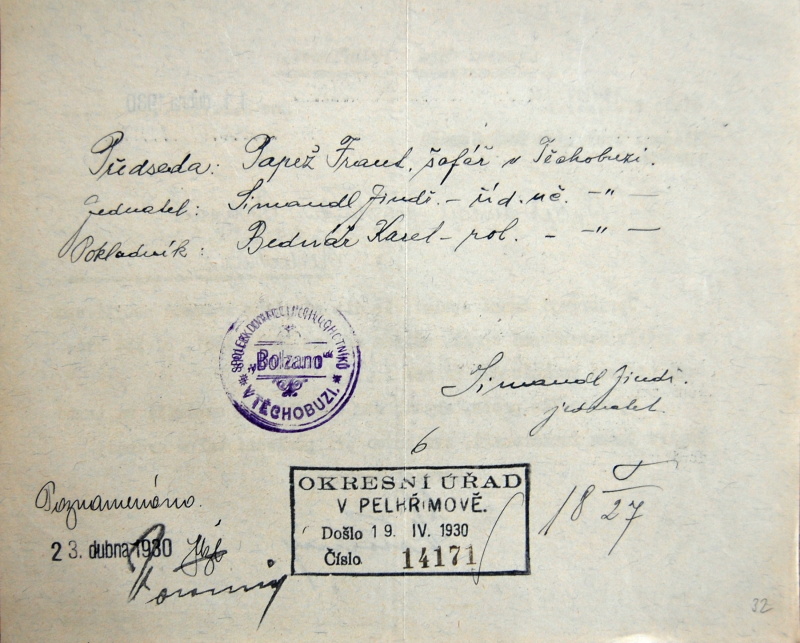 Předseda: Papež Frant. šafář v Těchobuzi.
Jednatel: Simandl Jindř. – říd. uč. –"–
Pokladník: Bednář Karel – rol. – –"–
SPOLEK DIVADELNÍCH OCHOTNÍKŮ
"Bolzano"
* V TĚCHOBUZI. *
Simandl Jindř.
jednatel.
6
OKRESNÍ ÚŘAD
V PELHŘIMOVĚ.
Došlo 19. IV. 1930
Číslo 14171
18 27
Poznamenáno.
23. dubna 1930
32